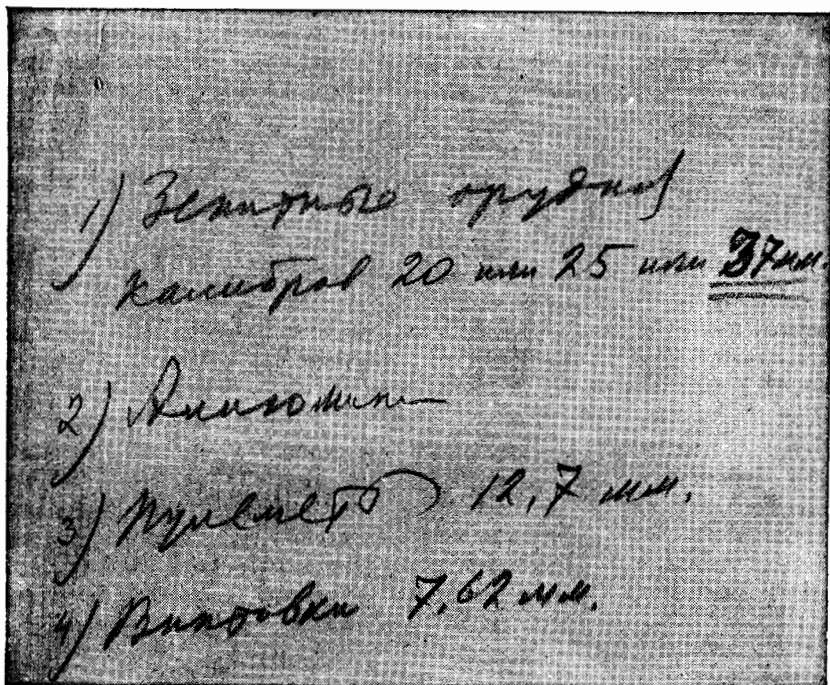 1) Зенитные орудия
калибров 20 или 25 или 37 мм.
2) Алюминий
3) Пулеметы 12,7 мм.
4) Винтовки 7,62 мм.